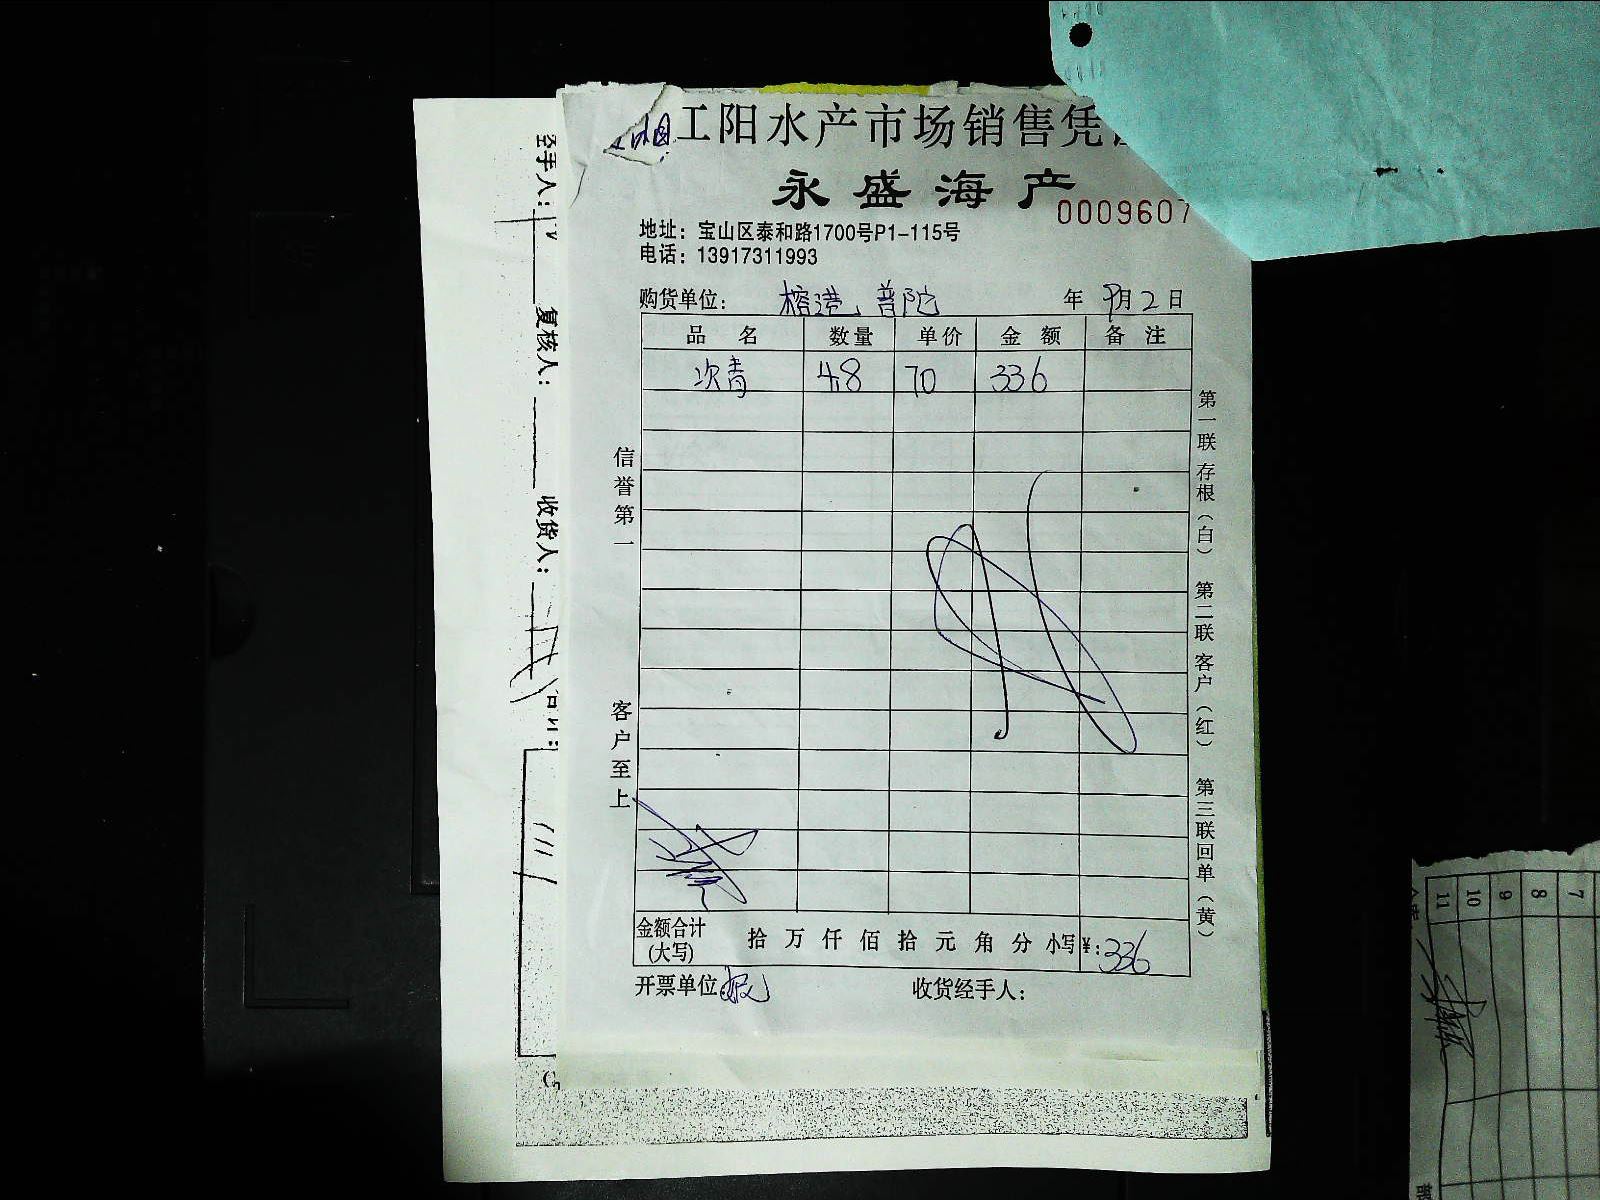 工阳水产市场销售凭
永盛海产
0009607
地址：宝山区泰和路1700号P1-115号
电话：13917311993
购货单位： 榕港 普陀 年 9月2日
品名 数量 单价 金额 备注
次青 4.8 70 336
信誉第一
客户至上
第一联 存根（白） 第二联 客户（红） 第三联 回单（黄）
金额合计(大写) 拾 万 仟 佰 拾 元 角 分 小写¥：336
开票单位： 收货经手人：
经手人：
复核人：
收货人：
合计：
11 10 9 8 7